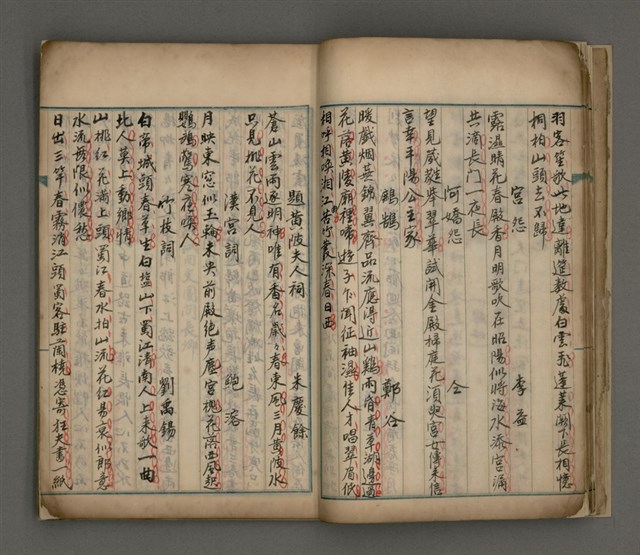 羽客笙歌此地違離筵數處白雲飛蓬萊闕下長相憶
桐柏山頭去不歸
宮怨　李益
露濕晴花春殿香月明歌吹在昭陽似將海水添宮漏
共滴長門一夜長
阿嬌怨　仝
望見葳蕤舉翠華試開金殿掃庭花須臾宮女傳來信
言幸平陽公主家
鷓鴣　鄭谷
暖戲烟蕪錦翼齊品流應得近山雞雨昏青草湖邊過
花落黃陵廟裡啼遊子乍聞征袖濕佳人才唱翠眉低
相呼相喚湘江苦竹叢深春日西
題黃陂夫人祠　朱慶餘
蒼山雲雨逐明神唯有香名歲々春東風三月黃陂水
只見桃花不見人
漢宮詞　鮑溶
月映東窓似玉輪未央前殿絕聲塵宮槐花落西風起
鸚鵡驚寒夜喚人
竹枝詞　劉禹錫
白帝城頭春草生白塩山下蜀江清南人上來歌一曲
北人莫上動鄉情
山桃紅花滿上頭蜀江春水拍山流花紅易衰似郎意
水流無限似儂愁
日出三竿春霧消江頭蜀客駐蘭橈憑寄狂夫書一紙